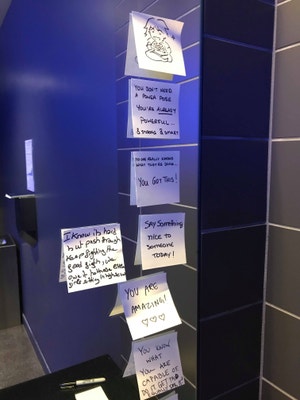 YOU DON'T NEED
A POWER POSE
YOU'RE ALREADY
POWERFUL...
& STRONG & SMART
NO ONE REALLY KNOWS
WHAT THEY'RE DOING
YOU GOT THIS!
SAY SOMETHING
NICE TO
SOMEONE
TODAY!
I know its hard
but push through
Keep fighting the
good fight, like
girls
YOU ARE
AMAZING!
YOU KNOW
WHAT
YOU ARE
CAPABLE OF
GET THE